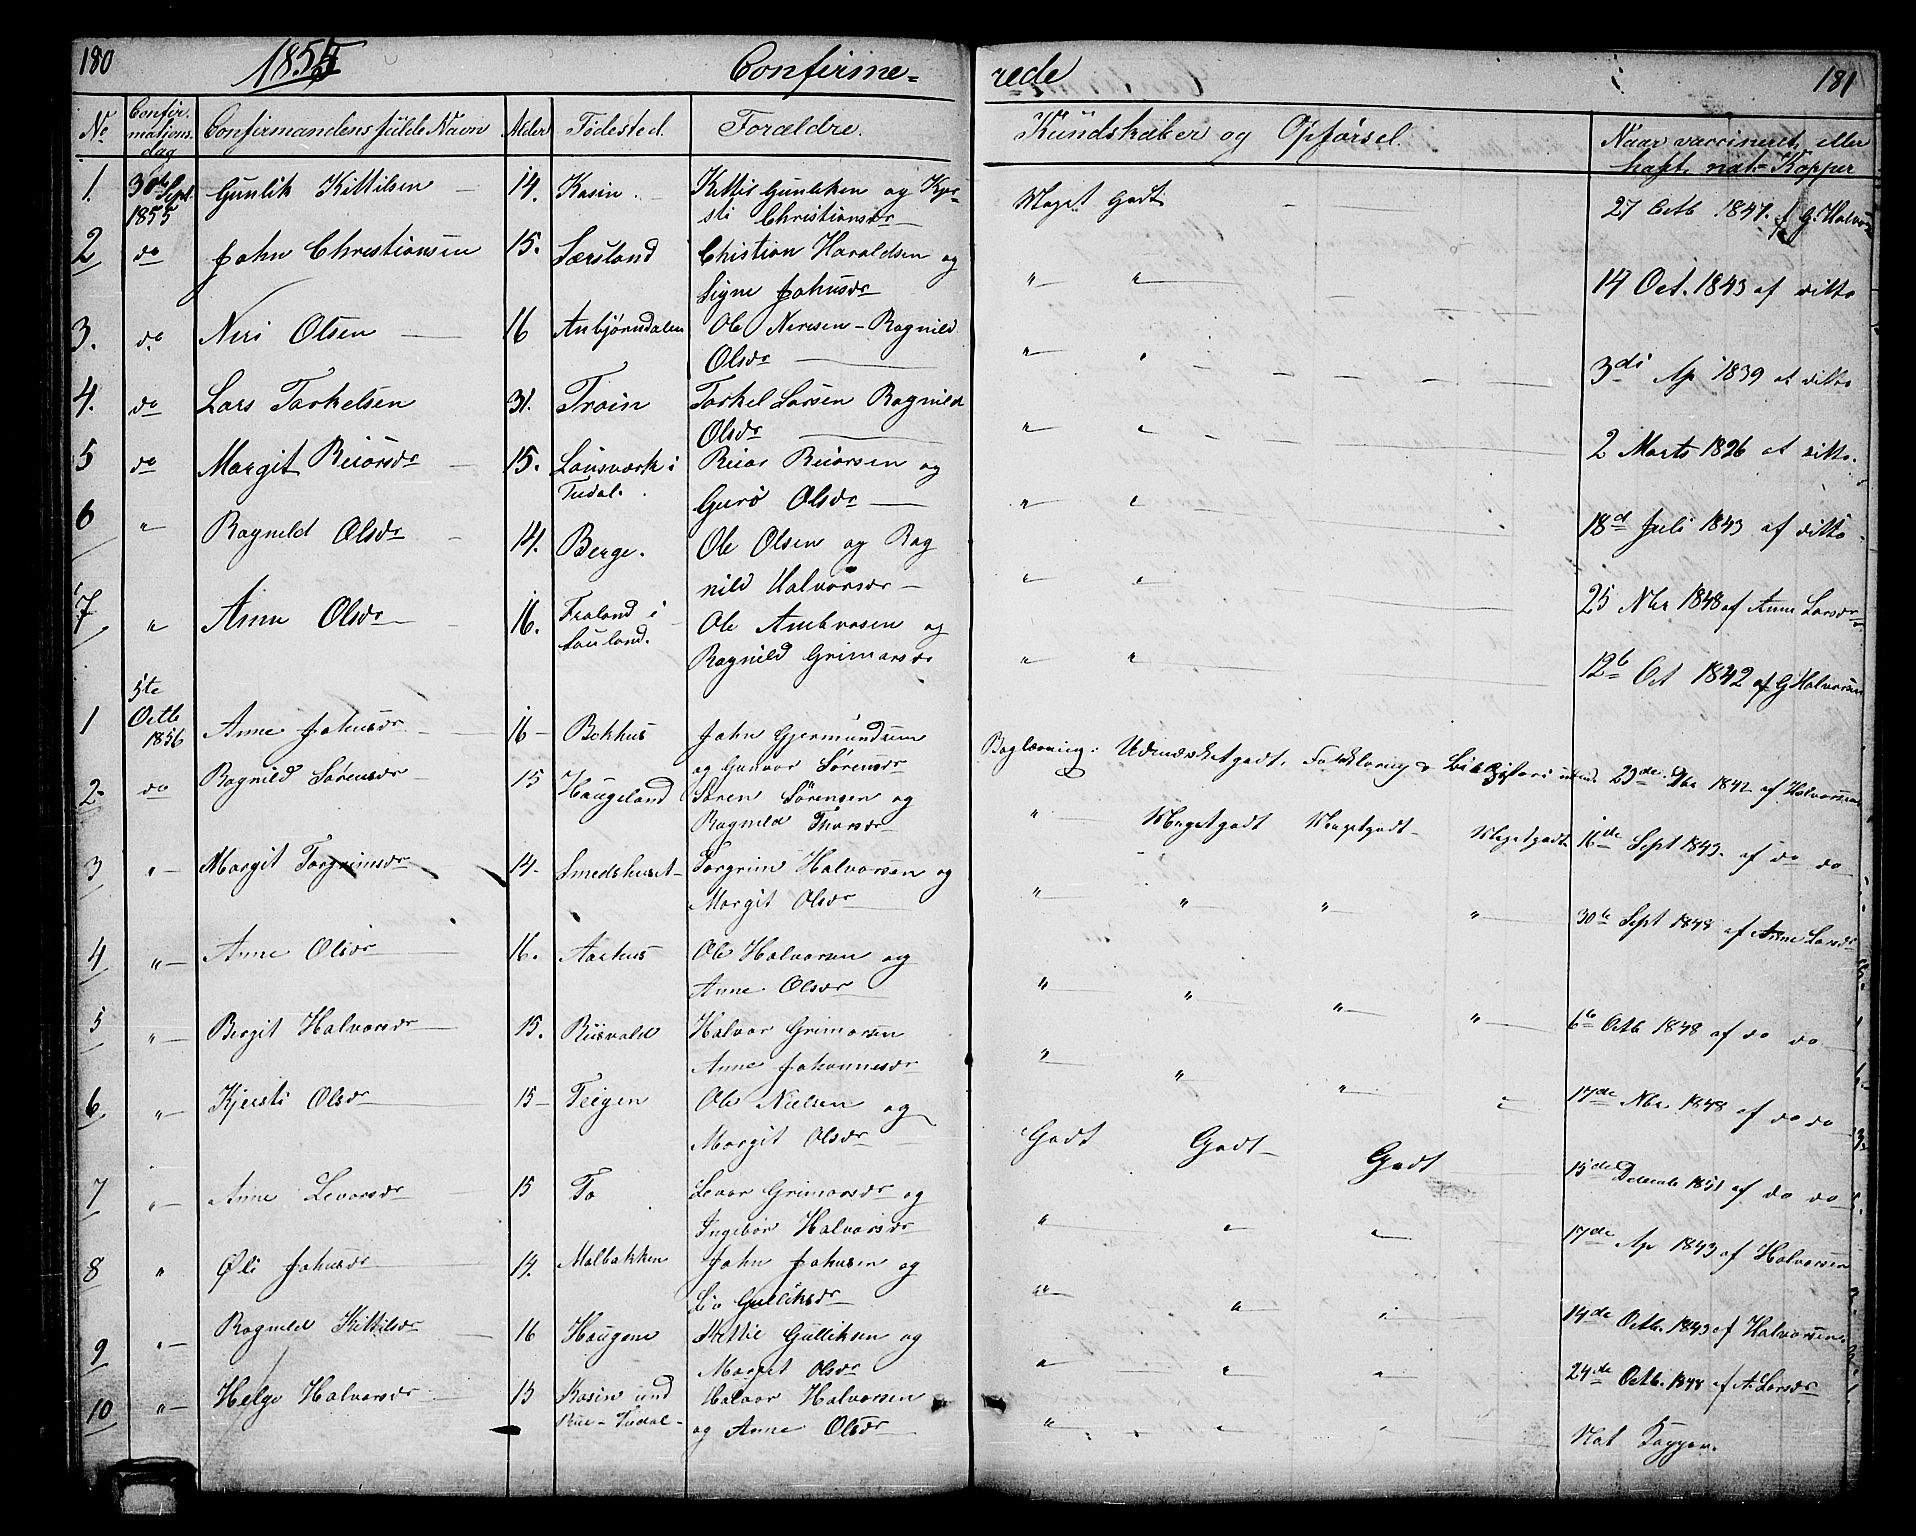 180 1855 Confirme= rede 181
No Confir- mations- dag Confirmandens fulde Navn Alder Fødested. Forældre. Kundskaber og Opførsel. Naar vaccineret, eller
havt nat. Kopper
1. 30te Sept. 1855 Gunlik Kittilsen 14. Kasin. Kittil Gunliksen og Kjer-
sti Christiansdr Meget Godt 27 Octb 1847. af G. Halvors
2 do John Christiansen 15. Særsland Christian Haraldsen og
Signe Johnsdr " " 14 Oct. 1843 af ditto
3. do Neri Olsen 16 Anbjørndalen Ole Neresen - Ragnild
Olsdr " " 3di Ap 1839 af ditto
4. do Lars Torkelsen 31. Troin Torkel Larsen Ragnild
Olsdr " " 2 Marts 1826 af ditto.
5 do Margit Reiorsdr 15. Lønsverk i
Tudal. Reior Reiorsen og
Guro Olsdr " " 18d Juli 1843 af ditto
6 " Ragnild Olsdr 14. Berge. Ole Olsen og Rag
nild Halvorsdr " " 25 Nbr 1848 af Anne Larsdr
7 " Anne Olsdr 16. Fraland i
Sauland. Ole Ambrosen og
Ragnild Grimarsdr " " 12te Oct 1842 af G Halvorsen
1 5te Octb 1856 Anne Johnsdr 16 Bekhus John Gjermundsen
og Gunvor Sørensdr Boglæsning: Udmærket godt, Forklaring & Bibelhistori 23de Dbr 1842 af Halvorsen
2. do Ragnild Sørensdr 15 Haugeland Søren Sørensen og
Ragnild Thorsdr " Meget godt Meget godt Meget godt 16de Sept 1843. af do do
3 " Margit Torgrimsdr 14. Smedshuset Torgrim Halvorsen og
Margit Olsdr " " " " 30te Sept 1848 af Anne Larsdr
4 " Anne Olsdr 16. Aashus Ole Halvorsen og
Anne Olsdr " " " " 6te Octb 1848 af do do
5 " Bergit Halvorsdr 15. Riisvald Halvor Grimarsen
Anne Johannesdr " " " " 17de Nbr 1848 af do do
6. " Kjersti Olsdr 15 Teigen Ole Nielsen og
Margit Olsdr Godt Godt Godt 15de December 1851 af do do
7 " Anne Levorsdr 15 To Levor Grimarsdr og
Ingebor Halvorsdr " " " 17de Ap 1843 af Halvorsen
8 " Øli Johnsdr 14. Malbakken John Johnsen og
Liv Gulliksdr " " " 14de Octb. 1843 af Halvorsen.
9 " Ragnild Kittilsdr 16 Haugene Kittil Gulliksen og
Margit Olsdr " " " 24de Octb. 1848 af A. Larsdr
10 " Helge Halvorsdr 15 Kasin und
Rue - Tudal - Halvor Halvorsen
og Anne Olsdr " " " Nat Kopper.